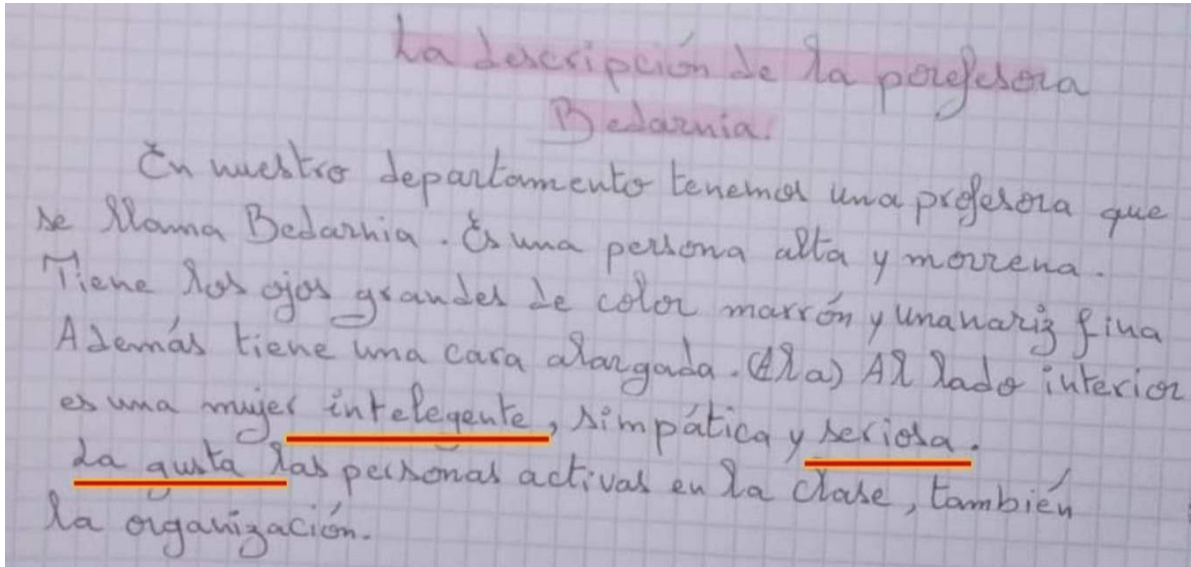 La descripción de la porefesora
Bedarnia.
En nuestro departamento tenemos una profesora que
se llama Bedarnia. Es una persona alta y morrena.
Tiene los ojos grandes de color marrón y una nariz fina
Además tiene una cara alargada. (Al a) Al lado interior
es una mujer intelegente, simpática y seriosa.
La gusta las personas activas en la clase, también
la organización.